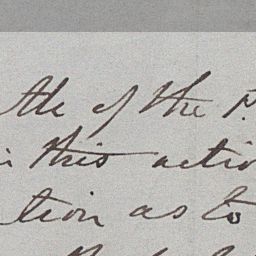 ttle of the P.
in this actio
tion as to